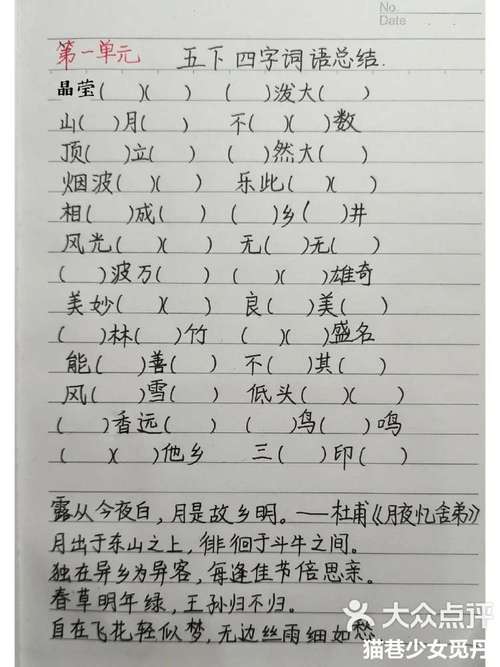 No
Date
第一单元 五下 四字词语总结.
晶莹( )( ) ( )泼大( )
山( )月( ) 不( )( )数
顶( )立( ) ( )然大( )
烟波( )( ) 乐此( )( )
相( )成( ) ( )乡( )井
风光( )( ) 无( )无( )
( )波万( ) ( )( )雄奇
美妙( )( ) 良( )美( )
( )林( )竹 ( )( )盛名
能( )善( ) 不( )其( )
风( )雪( ) 低头( )( )
( )香远( ) ( )鸟( )鸣
( )( )他乡 三( )印( )
露从今夜白，月是故乡明。——杜甫《月夜忆舍弟》
月出于东山之上，徘徊于斗牛之间。
独在异乡为异客，每逢佳节倍思亲。
春草明年绿，王孙归不归。
自在飞花轻似梦，无边丝雨细如愁
大众点评
猫巷少女觅丹